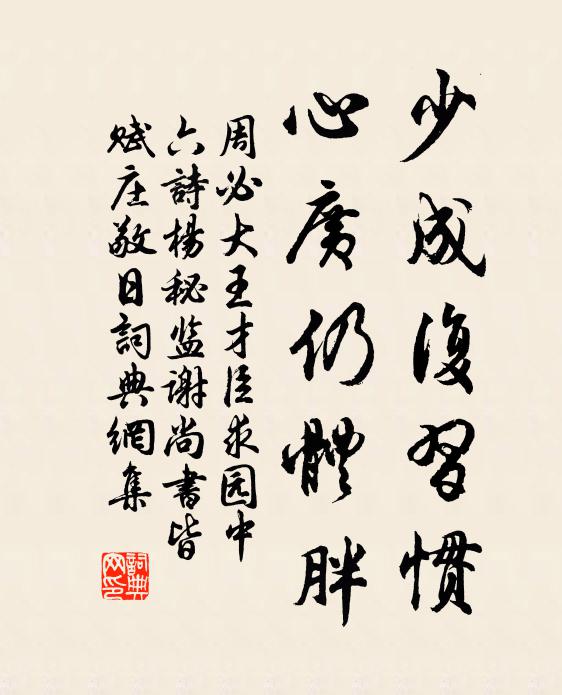 少成復習慣
心廣仍體胖
周必大王才臣求园中
六詩楊秘监谢尚書皆
赋庄敬日詞典網集
詞典网印